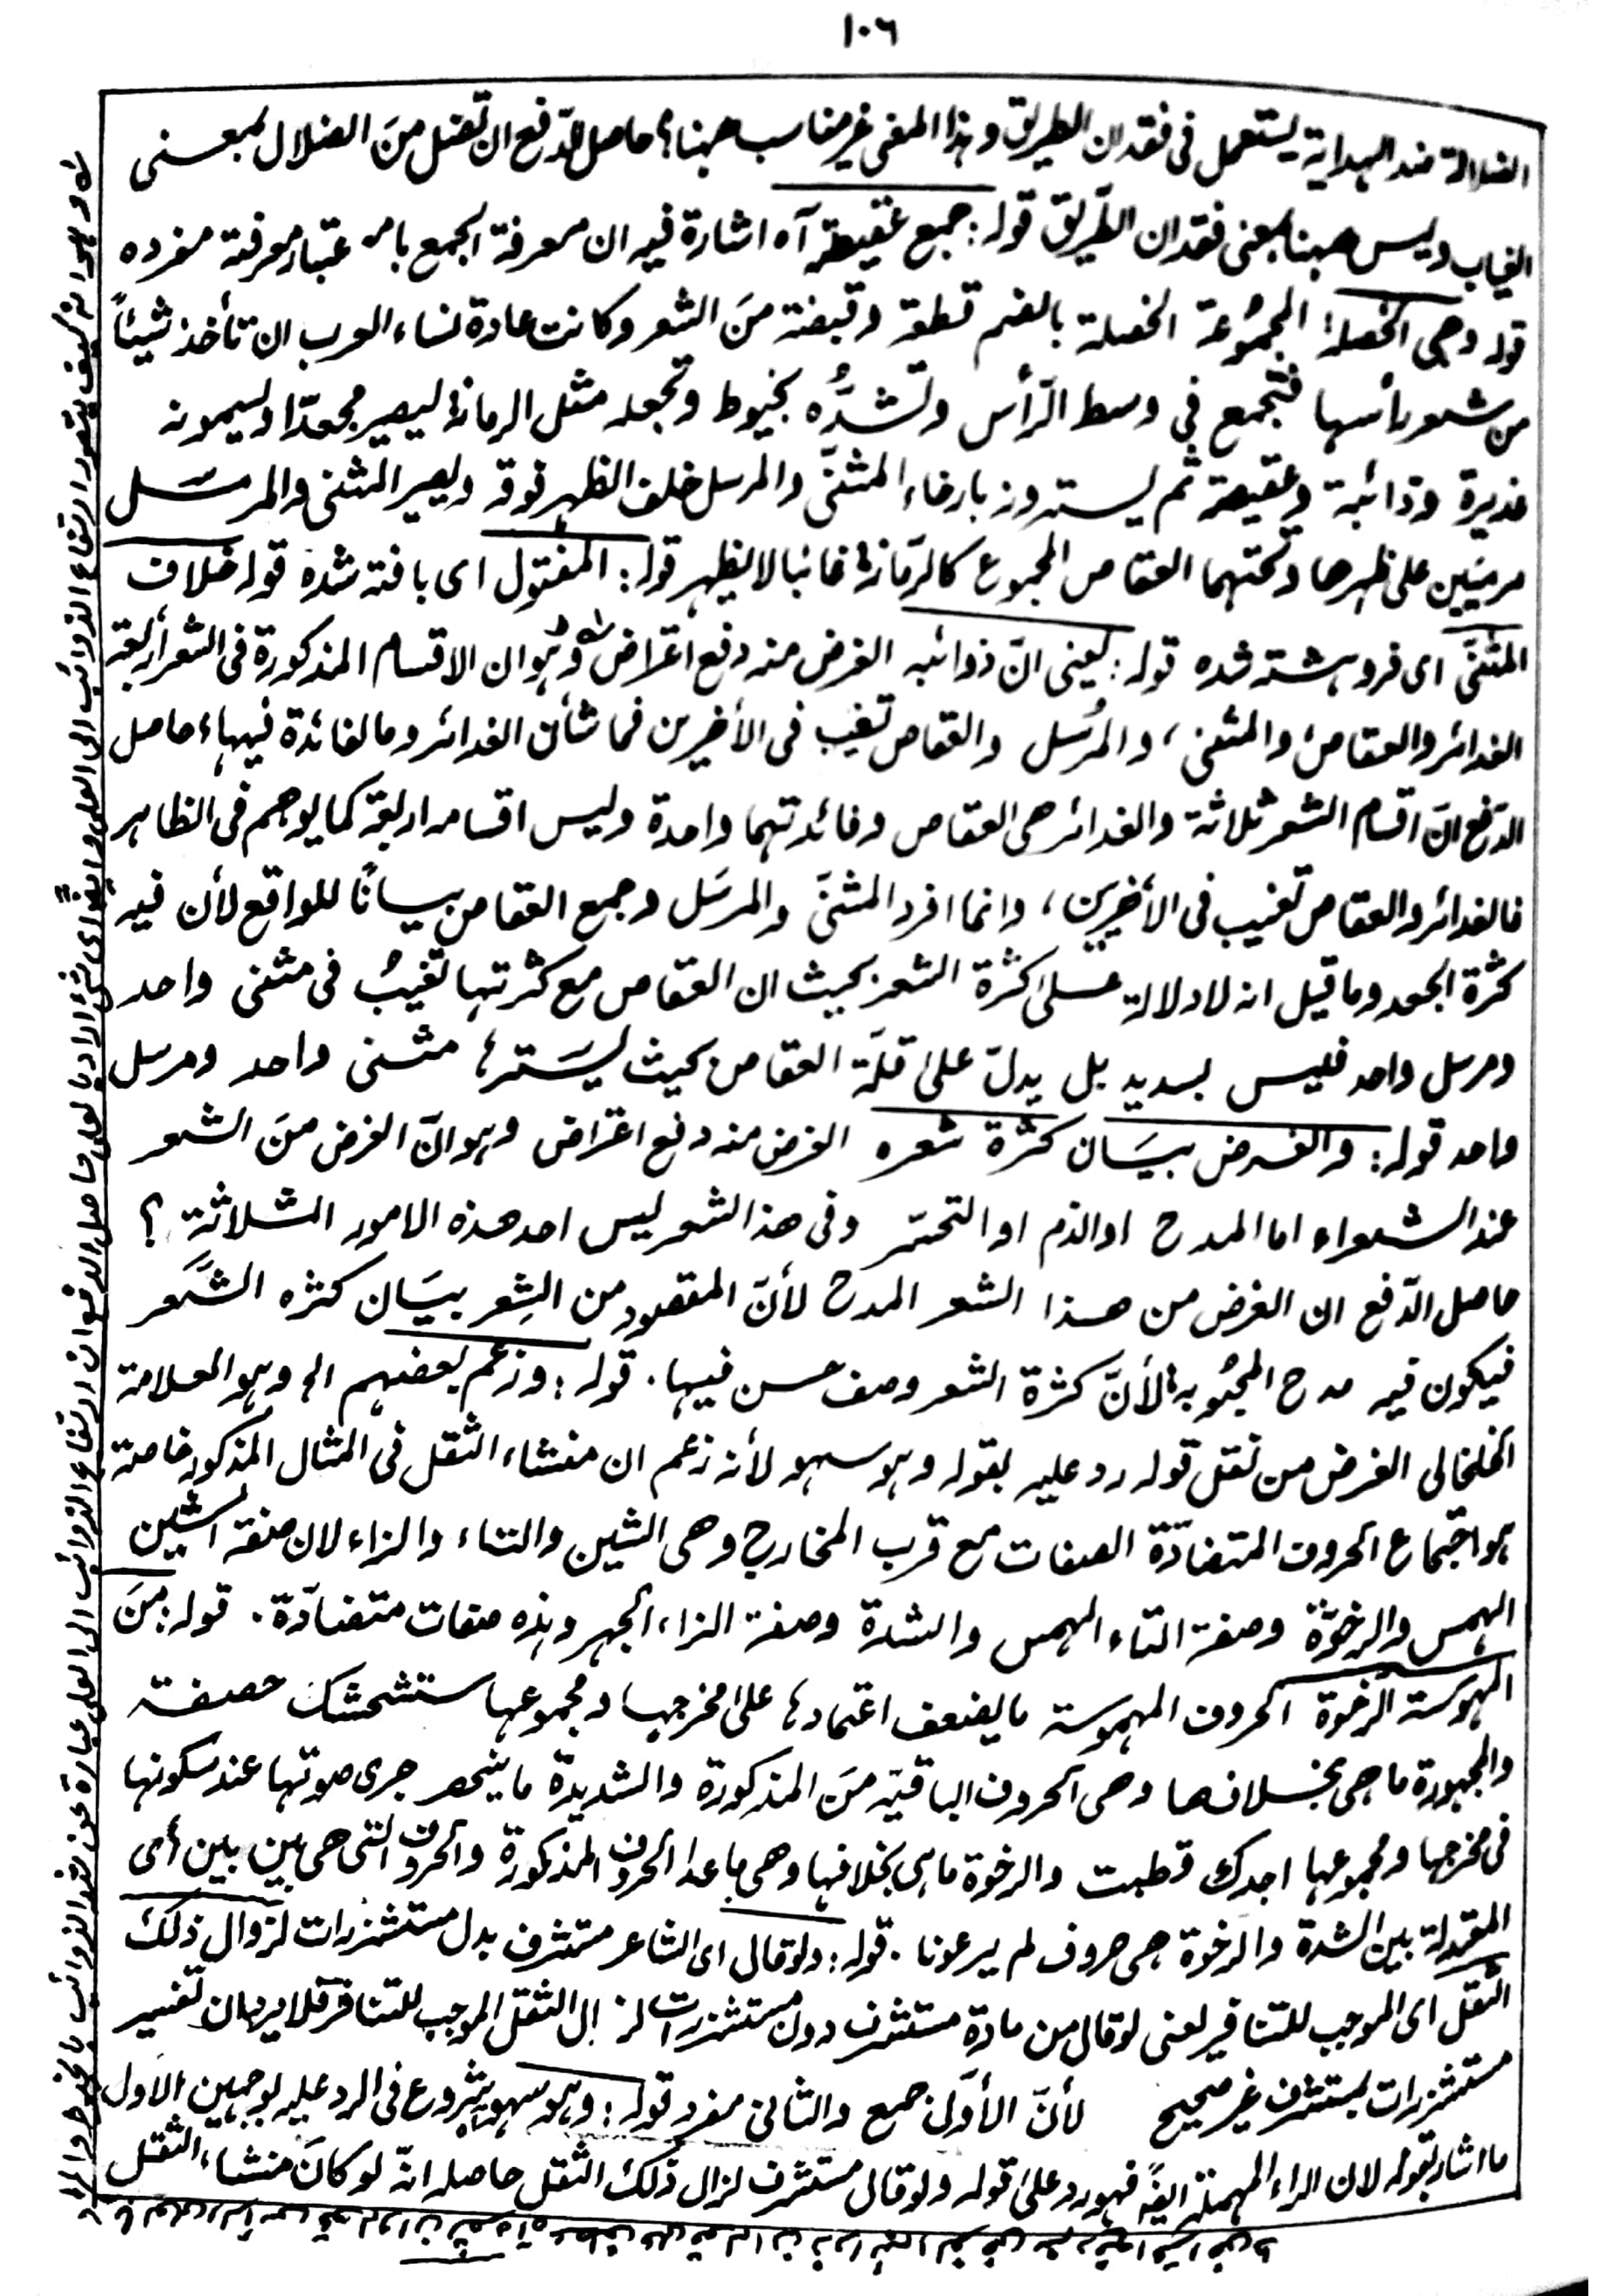 ١٠٦
الضلالة ضد الهداية يستعمل فى فقدان الطريق وهذا المعنى غير مناسب ههنا؟ حاصل الدّفع ان تضل منَ الضلال بمعنى
الغياب وليس ههنا بمعنى فقدان الطّريق قوله: جمع عقيصة آه اشارة فيه ان معرفة الجمع باعتبار معرفة مفرده
قوله وهى الخصلة المجمُوعة الخصلة بالضم قطعة وقبضة منَ الشعر وكانت عادة نساء العرب ان تأخذ شيئاً
من شعر رأسها فتجمع في وسط الرّأس وتشدُّه بخيوط وتجعله مثل الرمانة ليصير مجعدّا ويسمونه
غديرة وذائبة وعقيصة ثم يسترونه بارخاء المثنىّ والمرسل خلف الظهر فوقه ويصير المثنى والمرسَل
مرئيين على ظهرها وتحتهما العقاص المجموع كالرّمانة غائبا لا يظهر قوله: المفتول اى بافته شده قوله خلاف
المثنىّ اى فروهشته شده قوله: يعنى انّ ذوائبه الغرض منه دفع اعتراض وهو ان الاقسام المذكورة فى الشعر أربعة
الغدائر والعقاص والمثنى، والمُرسل والعقاص تغيب فى الأخيرين فما شأن الغدائر وما الفائدة فيها؟ حاصل
الدّفع انّ اقسام الشعر ثلاثة والغدائر هى العقاص وفائدتهما واحدة وليس اقسامه اربعة كما يوهم فى الظاهر
فالغدائر والعقاص تغيب فى الأخيرين، وانما افرد المثنىّ والمرسَل وجمع العقاص بيانًا للواقع لأن فيه
كثرة الجعد وما قيل انه لا دلالة عَلى كثرة الشعر بحيث ان العقاص مع كثرتها تغيبُ فى مثنى واحد
ومرسل واحد فليس بسديد بل يدلّ على قلّة العقاص بحيث يَسترها مثنى واحد ومرسل
واحد قوله: والغرض بيَان كثرة شعره الغرض منه دفع اعتراض وهو انّ الغرض منَ الشعر
عند الشعراء اما المدح او الذم او التحسّر وفى هذا الشعر ليس احد هذه الامور الثلاثة؟
حاصل الدّفع ان الغرض من هذا الشعر المدح لأنّ المقصود من الشِعر بيَان كثره الشَعر
فيكون فيه مدح المحبُوبة لأنّ كثرة الشعر وصف حسن فيها. قوله: وزعم بعضهم الخ وهو العلامة
الخلخالى الغرض من نقل قوله رد عليه بقوله وهو سهو لأنه زعم ان منشاء الثقل فى المثال المذكور خاصة
هو اجتماع الحروف المتضادّة الصفات مع قرب المخارج وهى الشين والتاء والزاء لان صفة الشين
الهمس والرخوّة وصفة التاء الهمس والشدة وصفة الزاء الجهر وهذه صفات متضادّة. قوله: منَ
المهموسة الرّخوة الحروف المهموسة ما يضعف اعتمادها على مخرجها ومجموعها ستشحثك خصفة
والمجهورة ما هى بخلافها وهى الحروف الباقيّة منَ المذكورة والشديدة ما ينحصر جرى صوتها عند سكونها
فى مخرجها ومجموعها اجدك قطبت والرخوة ما هى بخلافها وهى ما عدا الحروف المذكورة والحروف التى هى بين بين أى
المعتدلة بين الشدة والرخوة هى حروف لم يرعونا. قوله: ولو قال اى الشاعر مستشرف بدل مستشزرات لزوال ذلك
الثّقل اى الموجب للتنافر يعنى لو قال من مادة مستشرف دون مستشزرات لزال الثقل الموجب للتنافر فلا يرد ان تفسير
مستشزرات بمستشرف غير صحيح لأنّ الأوّل جمع والثانى مفرد قوله: وهو سهو شروع فى الرد عليه بوجهين الاول
ما اشار بقوله لان الراء المهملة ايضًا فهو رد على قوله ولو قال مستشرف لزال ذلك الثقل حاصله انّه لو كانَ منشاء الثقل